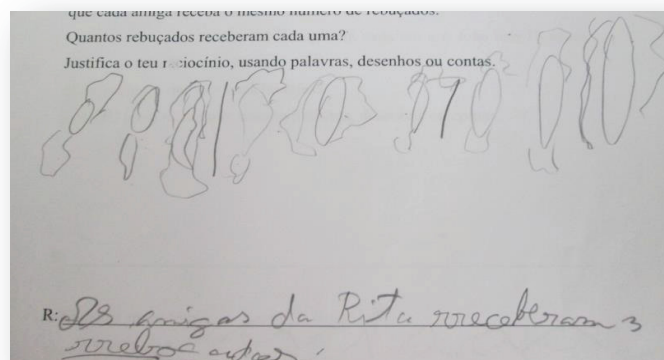 que cada amiga receba o mesmo número de rebuçados.
Quantos rebuçados receberam cada uma?
Justifica o teu raciocínio, usando palavras, desenhos ou contas.
R: As amigas da Rita rreceberam 3